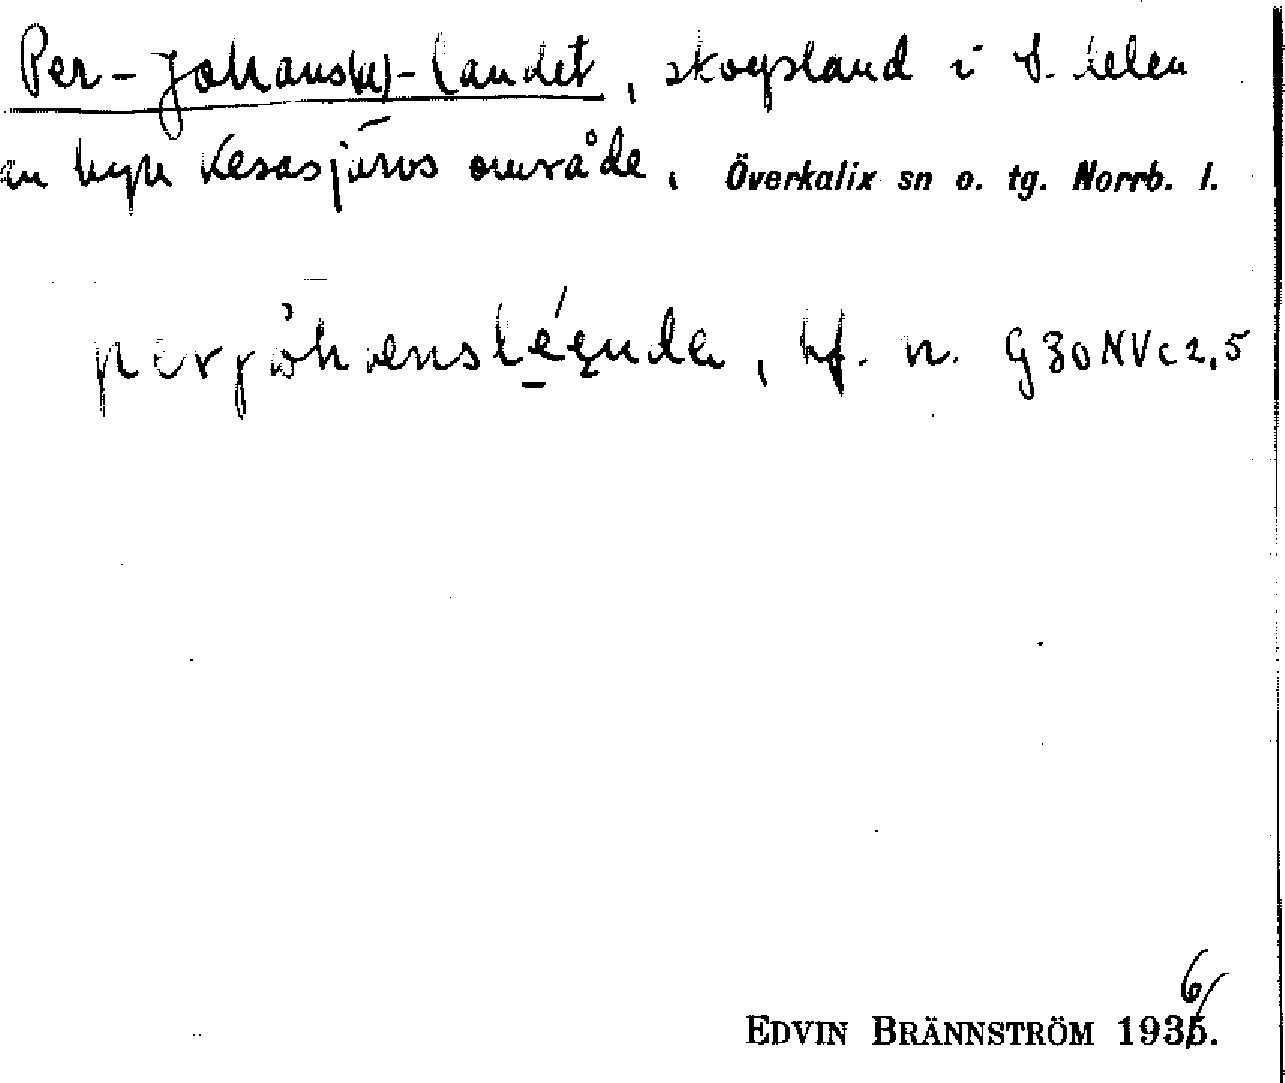 Per-Johans(u)-landet, skogsland i S. delen
av byn Kesasjärvs område, Överkalix sn o. tg. Norrb. l.
bf. n. G 30 NV c 2,5
6/
EDVIN BRÄNNSTRÖM 1935.